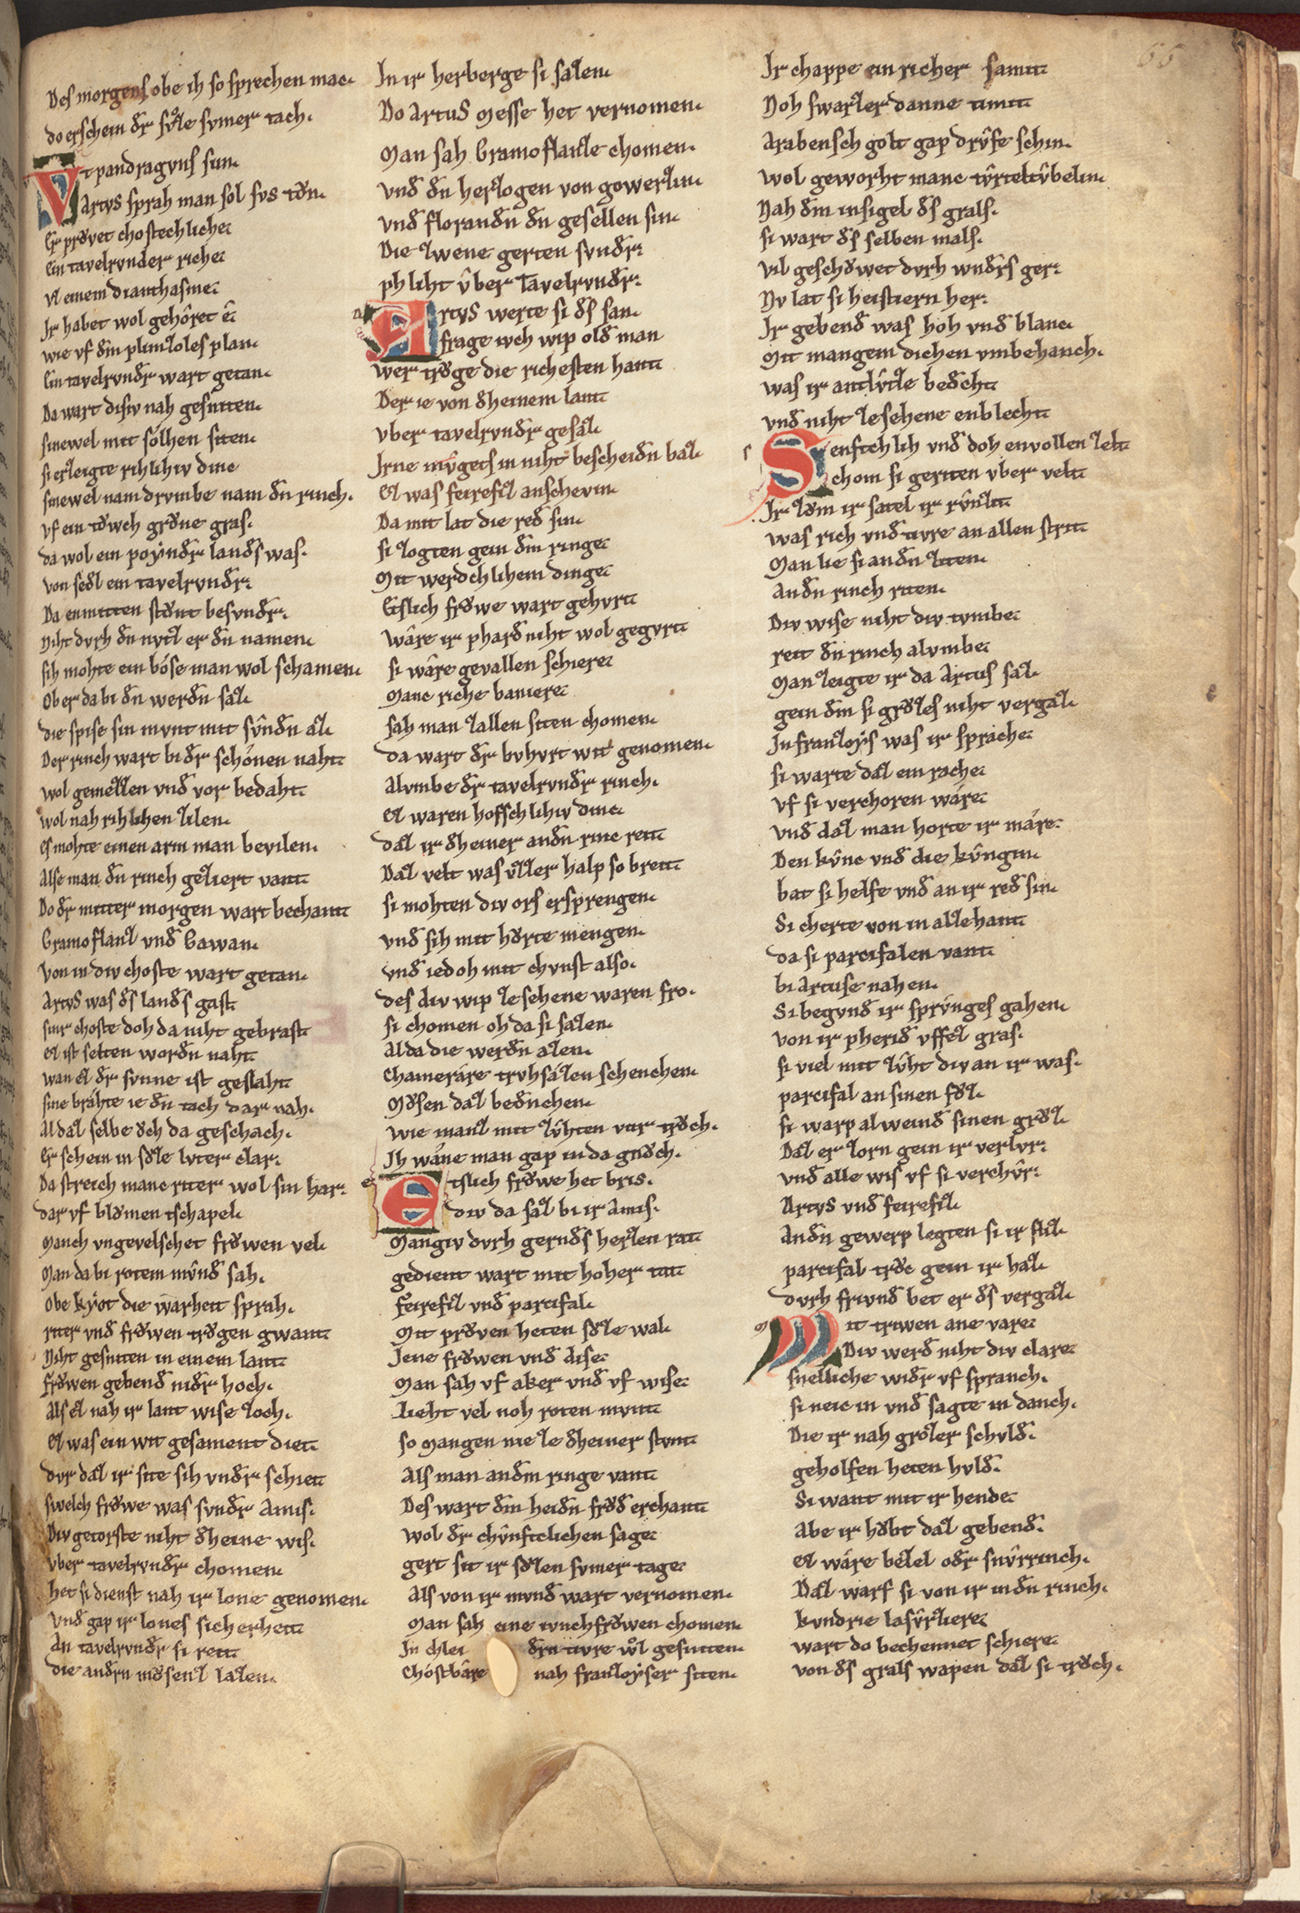 Des morgens obe ih so sprechen mac.
do erschein dr sv̊ze svmer tach.
Vtpandragvns sun.
Artvs sprah man sol svs tv̊n.
Er prv̊vet chostechliche.
Ein tavelrvnder riche.
Vz einem drianthasme.
Ir habet wol gehôret ê.
wie vf dem plimizoles plan.
Ein tavelrvnder wart getan.
Da wart disiv nah gesniten.
sinewel mit sölhen siten.
si erzeigte rihlihiv dinc
sinewel nam drvmbe nam dn rinch.
vf ein tŏwech grv̊ne gras.
da wol ein poẏnder landes was.
von sedl ein tavelrvnder.
Da enmitten stv̊nt besvnder.
Niht dvrh dn nvtz er dn namen.
sih mohte ein böse man wol schamen.
Ober da bi dn werdn saz.
die spise sin mvnt mit svndn az.
Der rinch wart bi dr schönen naht
wol gemezzen vnd vor bedaht.
wol nah rihlihen zilen.
es mohte einen arm man bevilen.
Alse man dn rinch geziert vant.
Do dr mitter morgen wart bechant
Gramoflanz vnd Gawan.
Von in div choste wart getan.
Artvs was ds lands gast.
sinr choste doh da niht gebrast
ez ist selten wordn naht
wan ez dr svnne ist geslaht
sine brâhte ie dn tach dar nah.
Al daz selbe ŏch da geschach.
Er schein in sv̊ze lvter clar.
Da streich manc riter wol sin har.
dar vf blv̊men tschapel.
Manch vngevelschet frŏwen vel.
Man da bi rotem mvnde sah.
Obe kyot die warheit sprah.
riter vnd frŏwen trv̊gen gwant.
Niht gesniten in einem lant.
frŏwen gebend nidr hoch.
Als ez nah ir lant wise zoch.
Ez was ein wit gesament diet.
dvr daz ir site sih vndr schiet
swelch frŏwe was svndr Amis.
Div getorste niht dheine wis.
vber tavelrvndr chomen.
het si dienst nah ir lone genomen.
vnd gap ir lones sicherheit.
An tavelrvndr si reit.
die andrn mv̊senz lazen.
In ir herberge si sazen.
Do Artus Messe het vernomen.
Man sah Gramoflanze chomen.
vnd dn herzogen von gowerzin.
vnd florandn dn gesellen sin.
Die zwene gerten svndr.
phliht v̂ber Tavelrvndr.
Artvs werte si ds san.
frage iveh wip old man
wer trv̊ge die richesten hant
Der ie von dheinem lant
vber tavelrvndr gesaz.
Irne mv̂gets in niht bescheidn baz.
Ez was feirefiz anschevin.
Da mit lat die red sin.
si zogten gein dem ringe
Mit werdchlihem dinge
Etslich frŏwe wart gehvrt
wâre ir phard niht wol gegvrt
si wâre gevallen schiere
Manc riche baniere
sah man zallen siten chomen.
da wart dr bvhvrt wit genomen.
Alvmbe dr tavelrvndr rinch.
Ez waren hofschlihiv dinc.
daz ir dheiner andn rinc reit.
Daz velt was vzzer halp so breit
si mohten div ors ersprengen.
vnd sih mit hv̊rte mengen.
vnd iedoh mit chvnst also.
des div wip ze sehene waren fro.
si chomen oh da si sazen.
Alda die werdn azen.
Chamerâre trvhsâzen schenchen.
Mv̊sen daz bedenchen.
wie manz mit zv̂hten vur trv̊ch.
Ih wâne man gap in da gnv̊ch.
Etslich frŏwe het bris.
div da saz bi ir Amis.
Mangiv dvrh gernds herzen rat
gedient wart mit hoher tat
feirefiz vnd parcifal.
Mit prv̊ven heten sv̊ze wal.
Jene frŏwen vnd dise.
Man sah vf aker vnd vf wise.
Lieht vel noh roten mvnt
so mangen nie ze dheiner stvnt
Als man an dem ringe vant.
Des wart dem heidn frŏd erchant
wol dr chv̂nfteclichen sage
gert sit ir sv̊zen svmer tage
Als von ir mvnd wart vernomen.
Man sah eine ivnchfrŏwen chomen.
In chlei drn tivre wol gesniten.
Chostbâre nah franzoyser siten.
Ir chappe ein richer samit
Noh swarzer danne timit
Arabensch golt gap drv̂fe schin.
wol geworht manc tv̂rteltv̂belin.
Nah dem insigel ds grals.
si wart ds selben mals.
vil geschŏwet dvrh wndrs ger.
Nv lat si heistiern her.
Ir gebend was hoh vnd blanc.
Mit mangem dichen vmbehanch.
was ir antlv̂tze bedcht
vnd niht ze sehene enblecht
Senftchlih vnd doh envollen zelt
chom si geriten vber velt
Ir zŏm ir satel ir rv̂nzit
was rich vnd tivre an allen strit
Man lie si an dn ziten.
An dn rinch riten.
Div wise niht div tvmbe
reit dn rinch alvmbe
Man zeigte ir da Artus saz.
gein dem si grv̊zes niht vergaz.
In franzoẏs was ir sprache
si warte daz ein rache
vf si verchoren wâre
vnd daz man horte ir mâre
Den kv̂nc vnd die kv̂ngin.
bat si helfe vnd an ir red sin.
Si cherte von in alzehant
da si parcifalen vant
bi Artuse nahen.
Si begvnd ir sprvnges gahen.
von ir pherid vffez gras.
si viel mit zv̂ht div an ir was.
parcifal an sinen fv̊z.
si warp al weinend sinen grv̊z.
Daz er zorn gein ir verlvr.
vnd alle wis vf si verchv̂r.
Artvs vnd feirefiz.
An dn gewerp legten si ir fliz.
parcifal trv̊c gein ir haz.
dvrh frivnd bet er ds vergaz.
Mit triwen ane vare
Div werd niht div clare
snelliche widr vf spranch.
si neic in vnd sagte in danch.
Die ir nah grôzer schvld.
geholfen heten hvld.
Si want mit ir hende
Abe ir hŏbt daz gebend.
ez wâre bezel odr snv̂rrinch.
Daz warf si von ir in dn rinch.
Kvndrie lasv̂rziere
wart do bechennet schiere
von ds grals wapen daz si trv̊ch.